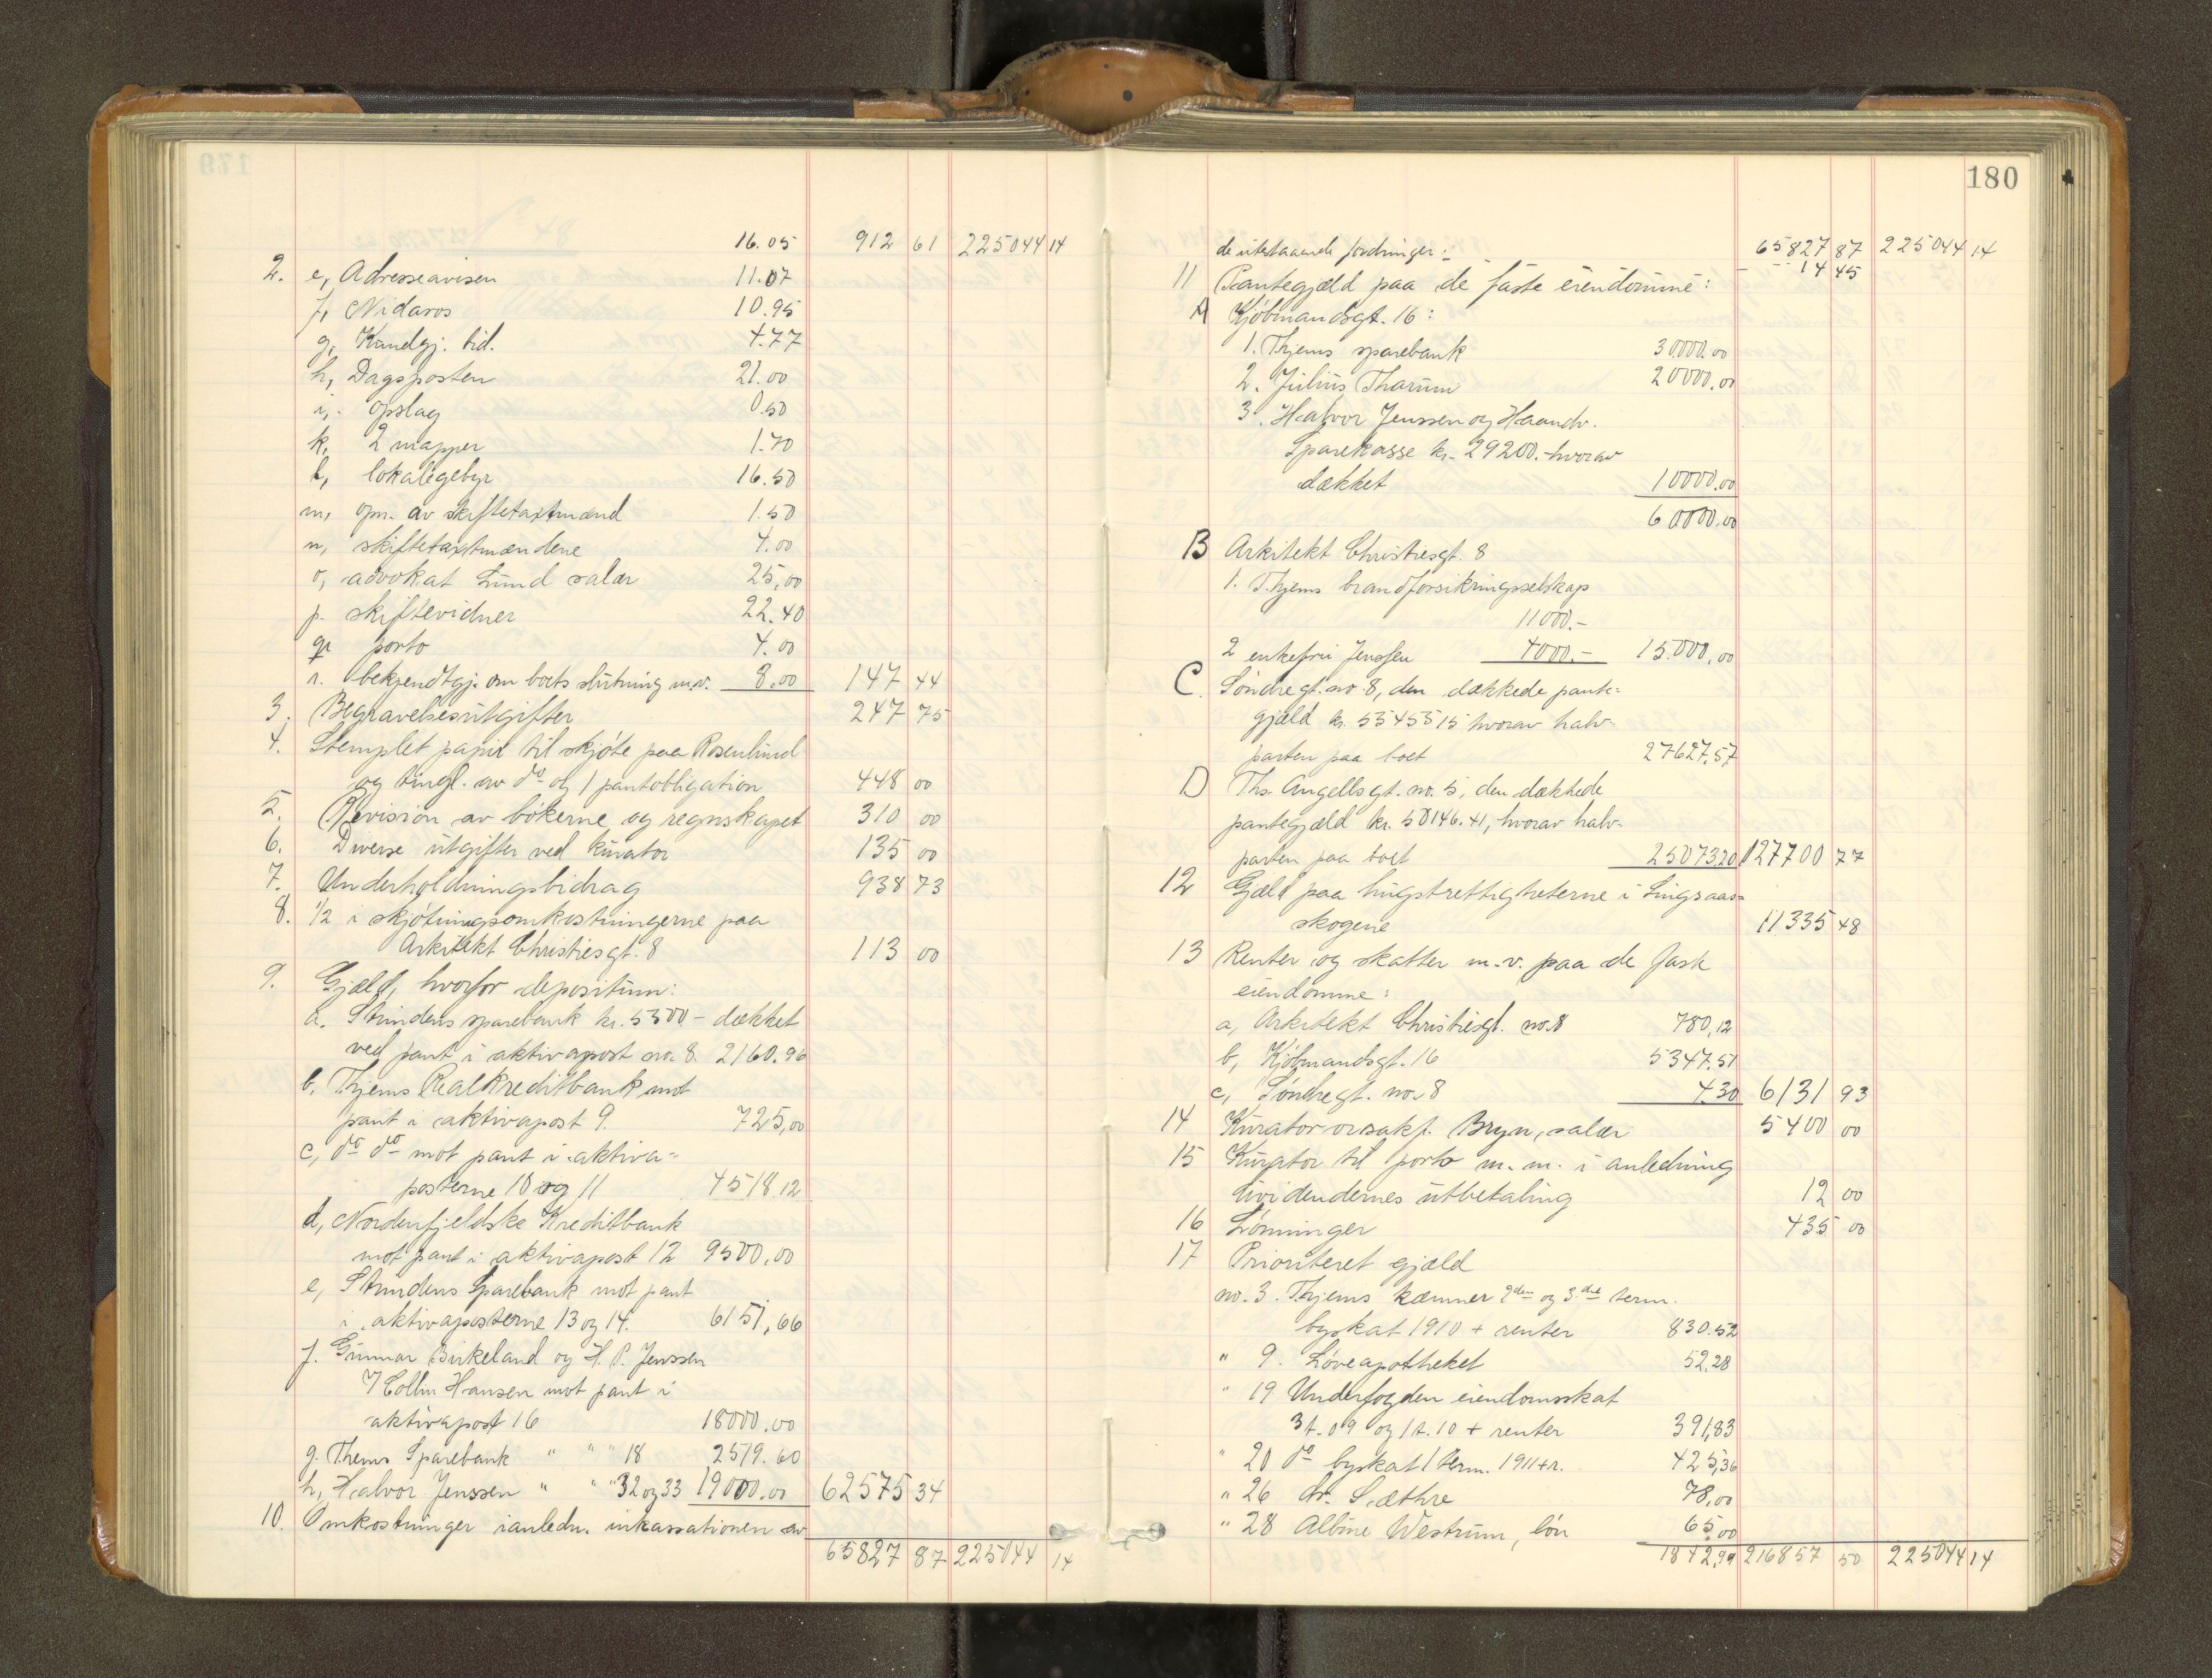 179
16.05 912 61 225044 14
2. e, Adresseavisen 11.07
f, Nidaros 10.95
g, Kundgj. tid. 4.77
h, Dagsposten 21.00
i, opslag 0.50
k, 2 mapper 1.70
l, lokalegebyr 16.50
m, opn. av skiftetaxtmænd 1.50
n, skiftetaxtmændene 4.00
o, advokat Lund salær 25,00
p. skiftevidner 22.40
q, porto 4.00
r. bekjendtgj. om boets slutning m.v. 8.00 147 44
3. Begravelsesutgifter 247 75
4. Stemplet papir til skjöte paa Rosenlund
og tingl. av do og 1 pantobligation 448 00
5. Revision av bökerne og regnskapet 310 00
6. Diverse utgifter ved kurator 135 00
7. Underholdningsbidrag 938 73
8. 1/2 i skjötningsomkostningerne paa
Arkitekt Christiesgt. 8 113 00
9. Gjæld, hvorfor depositum:
a. Strindens sparebank kr. 5300 - dækket
ved pant i aktivapost no. 8. 2160.96
b. Thjems Realkreditbank mot
pant i aktivapost 9. 725,00
c, do do mot pant i aktiva-
posterne 10 og 11 4518.12
d, Nordenfjeldske Kreditbank
mot pant i aktivapost 12 9500,00
e, Strindens Sparebank mot pant
i aktivaposterne 13 og 14. 6151,66
f. Gunnar Birkeland og H. P. Jenssen
7 Collin Hansen mot pant i
aktivapost 16 18000.00
g. Thems Sparebank " " " 18 2519.60
h, Halvor Jenssen " " " 32 og 33 19000.00 62575 34
10. Omkostninger i anledn. inkassationen av
65827 87 225044 14
180
de utestaaende fordringer:- 65827 87 225044 14
14 45
11 Pantegjæld paa de faste eiendomme:
A Kjöbmandsgt. 16:
1. Thjems sparebank 30000.00
2. Julius Tharum 20000.00
3. Halvor Jenssen og Haandv.
Sparekasse kr. 29200.- hvorav
dækket 10000.00
60000.00
B Arkitekt Christiesgt. 8
1. Thjems brandforsikringsselskap
11000.-
2 enkefru Jenssen 4000.- 15.000,00
C. Söndregt. no. 8, den dækkede pante-
gjæld kr. 55455 15 hvorav halv-
parten paa boet 27627.57
D Ths. Angellsgt. no. 5, den dækkede
pantegjæld kr. 50146.41, hvorav halv-
parten paa boet 25073 20 127700 77
12 Gjæld paa hugstrettigheterne i Singsaas-
skogene 11335 48
13 Renter og skatter m.v. paa de faste
eiendomme:
a, Arkitekt Christiesgt. no. 8 780,12
b, Kjöbmandsgt. 16 5347.51
c, Söndregt. no. 8 4.30 6131 93
14 Kurator o.r.sakf. Bryn, salær 5400 00
15 Kurator til porto m. m. i anledning
dividendernes utbetaling 12 00
16 Lönninger 435 00
17 Prioriteret gjæld
no. 3. Thjems kæmner 2den og 3die term.
byskat 1910 + renter 830.52
" 9. Löveapotheket 52.28
" 19 Underfogden eiendomsskat
3 t. 09 og 1 t. 10 + renter 391,83
" 20 do byskat 1 term. 1911 + r. 425,36
" 26 dr. Sæthre 78,00
" 28 Albine Westrum, lön 65.00
1842,99 216857 50 225044 14